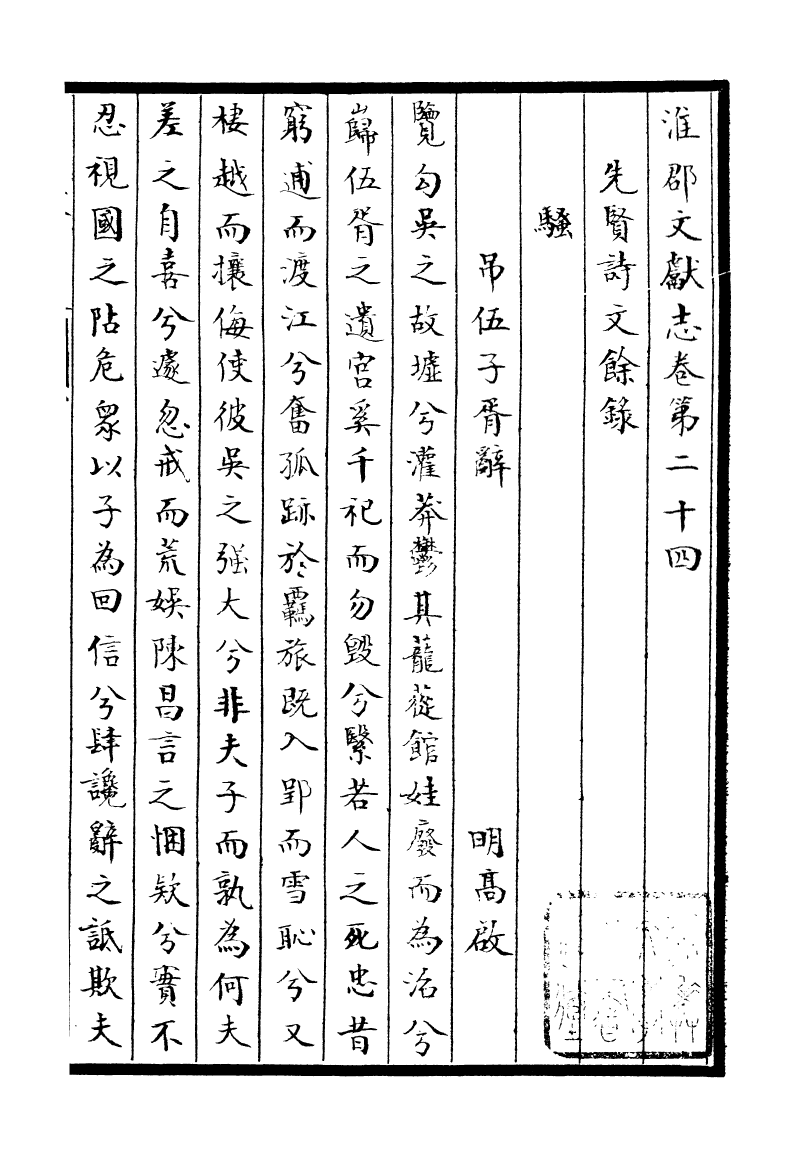 淮郡文獻志卷第二十四
先賢詩文餘錄
騷
吊伍子胥辭 明高啟
覽勾吳之故墟兮灌莽鬱其蘢蓯館娃廢而為沼兮
巋伍胥之遺宮奚千祀而勿毀兮繄若人之死忠昔
窮逋而渡江兮奮孤跡於羈旅既入郢而雪恥兮又
棲越而攘侮使彼吳之强大兮非夫子而孰為何夫
差之自喜兮遽忽戒而荒娛陳昌言之悃款兮實不
忍視國之阽危衆以子為回信兮肆讒辭之詆欺夫